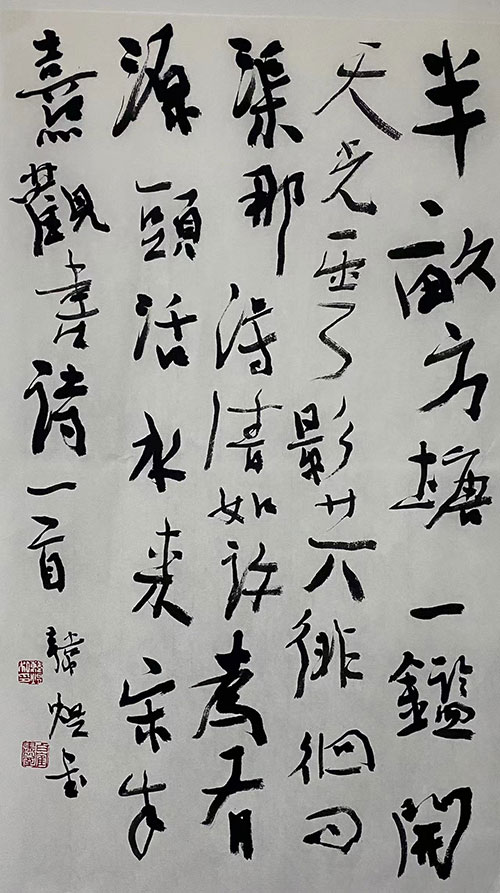 半畝方塘一鑑開
天光雲影共徘徊問
渠那得清如許為有
源頭活水來宋朱
熹觀書詩一首
韓 书